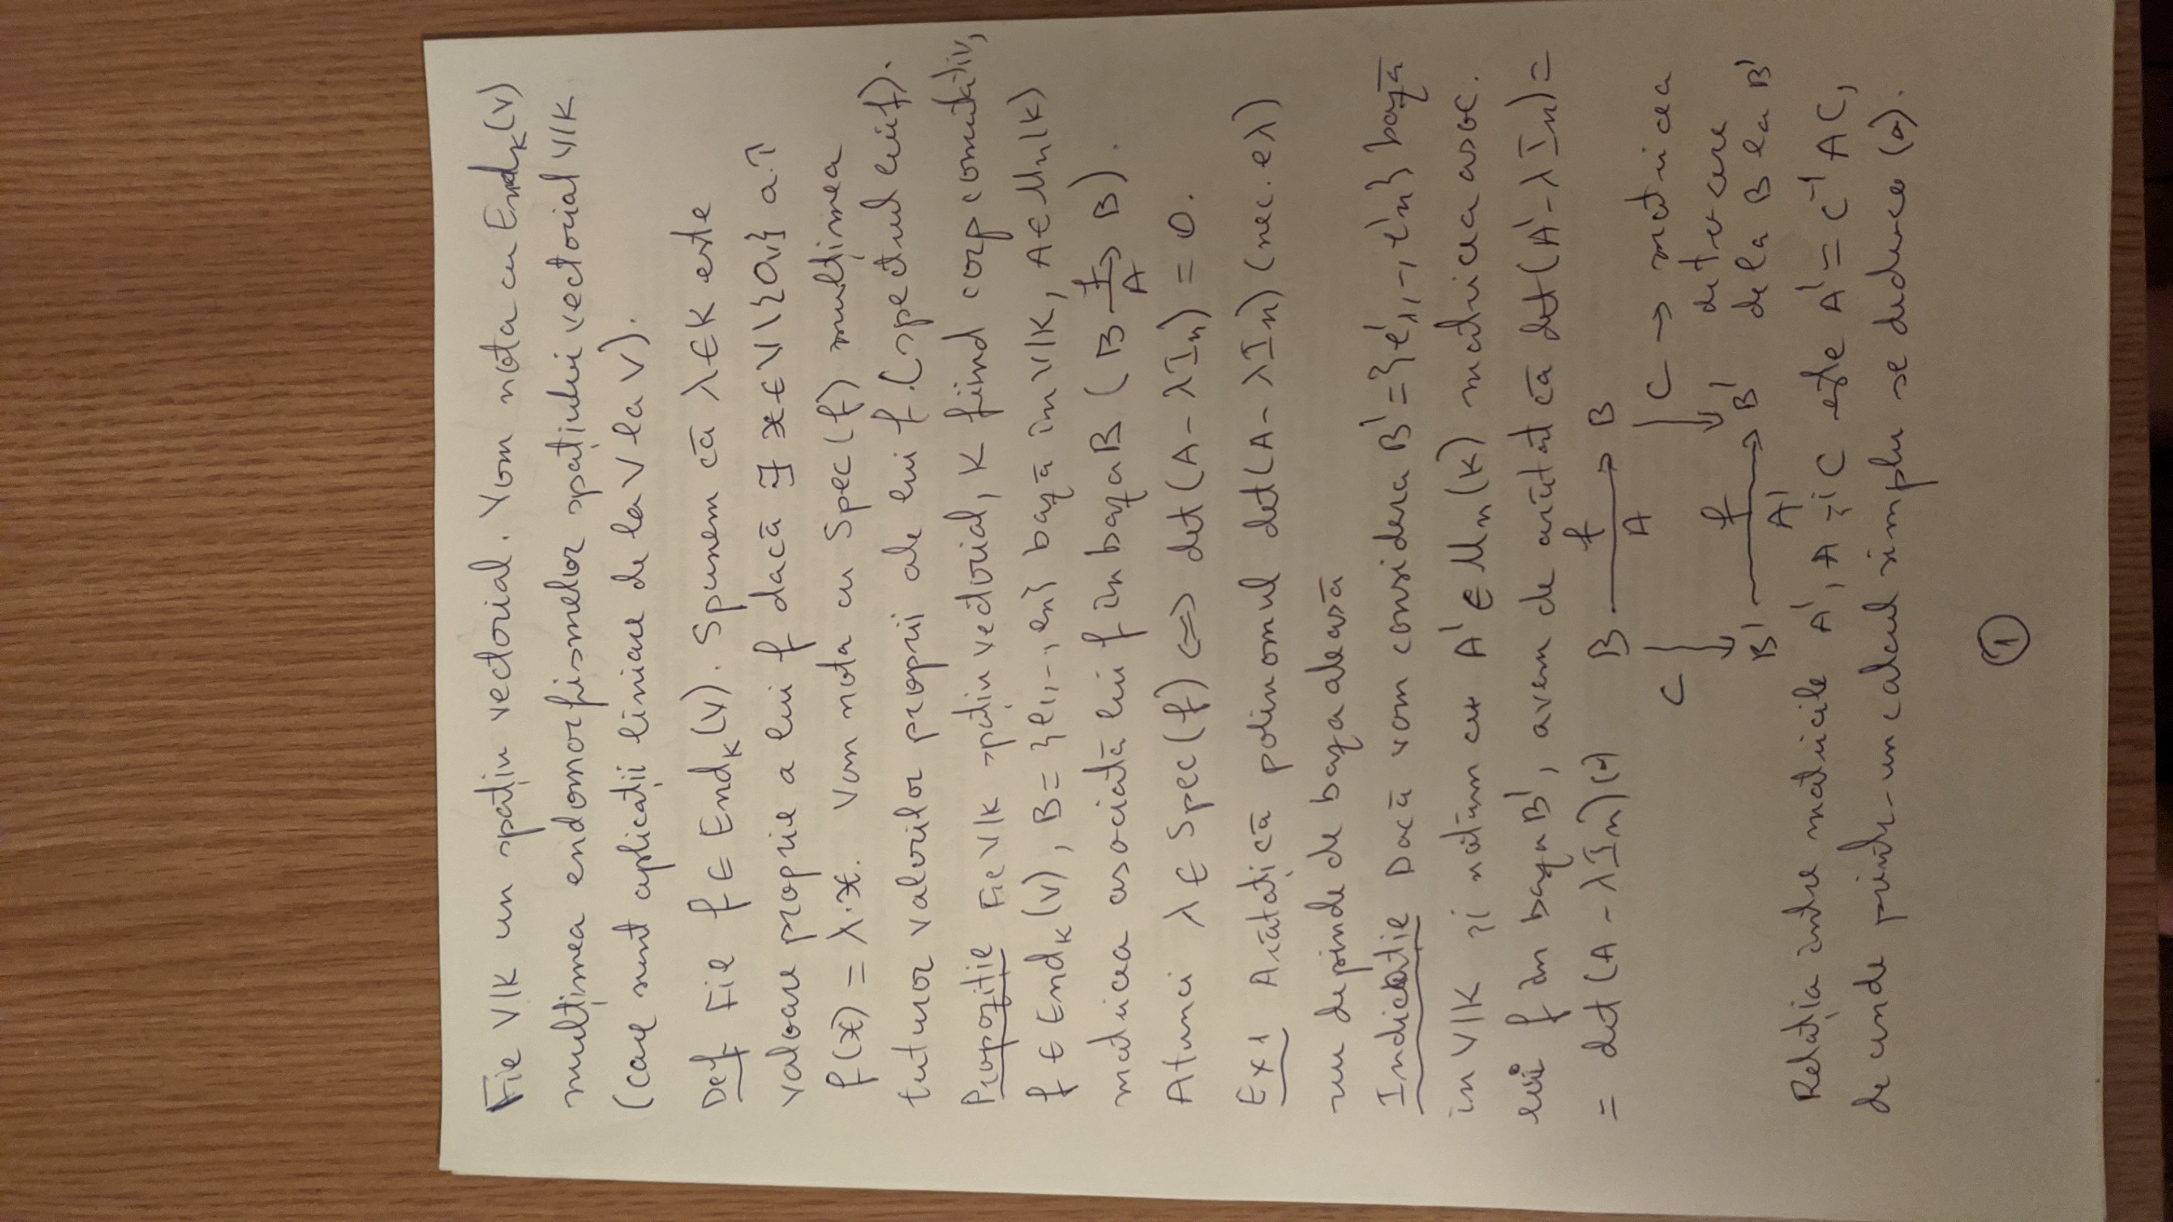 Fie V/K un spațiu vectorial. Vom nota cu End_K(V)
mulțimea endomorfismelor spațiului vectorial V/K
(care sunt aplicații liniare de la V la V).
Def Fie f ∈ End_K(V). Spunem că λ∈K este
valoare proprie a lui f dacă ∃ x∈V\{0_V} a.î
f(x) = λ·x. Vom nota cu Spec(f) mulțimea
tuturor valorilor proprii ale lui f. (spectrul lui f).
Propoziție Fie V/K spațiu vectorial, K fiind corp comutativ,
f ∈ End_K(V), B = {e_1, -, e_n} bază în V/K, A∈M_n(K)
matricea asociată lui f în baza B (B →^f_A B).
Atunci λ ∈ Spec(f) ⇔ det(A - λI_n) = 0.
Ex 1 Arătați că polinomul det(A - λI_n) (nec. e λ)
nu depinde de baza aleasă
Indicație Dacă vom considera B' = {e'_1, -, e'_n} bază
în V/K și notăm cu A' ∈ M_n(K) matricea asoc.
lui f în baza B', avem de arătat că det(A' - λI_n) =
= det(A - λI_n) B f B
A
C C → matricea
de trecere
f
B' B' de la B la B'
A'
Relația între matricile A', A și C este A' = C^-1 AC,
de unde printr-un calcul simplu se deduce
1